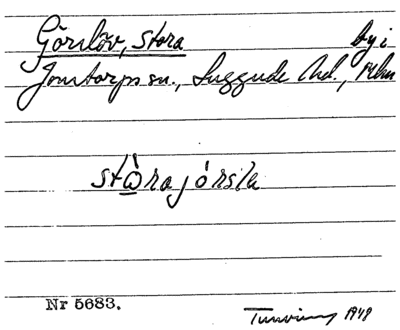 Görslöv, Stora by i
Jonstorps sn., Luggude hd., Mlm
stòrajórsla
Nr 5683. 1948